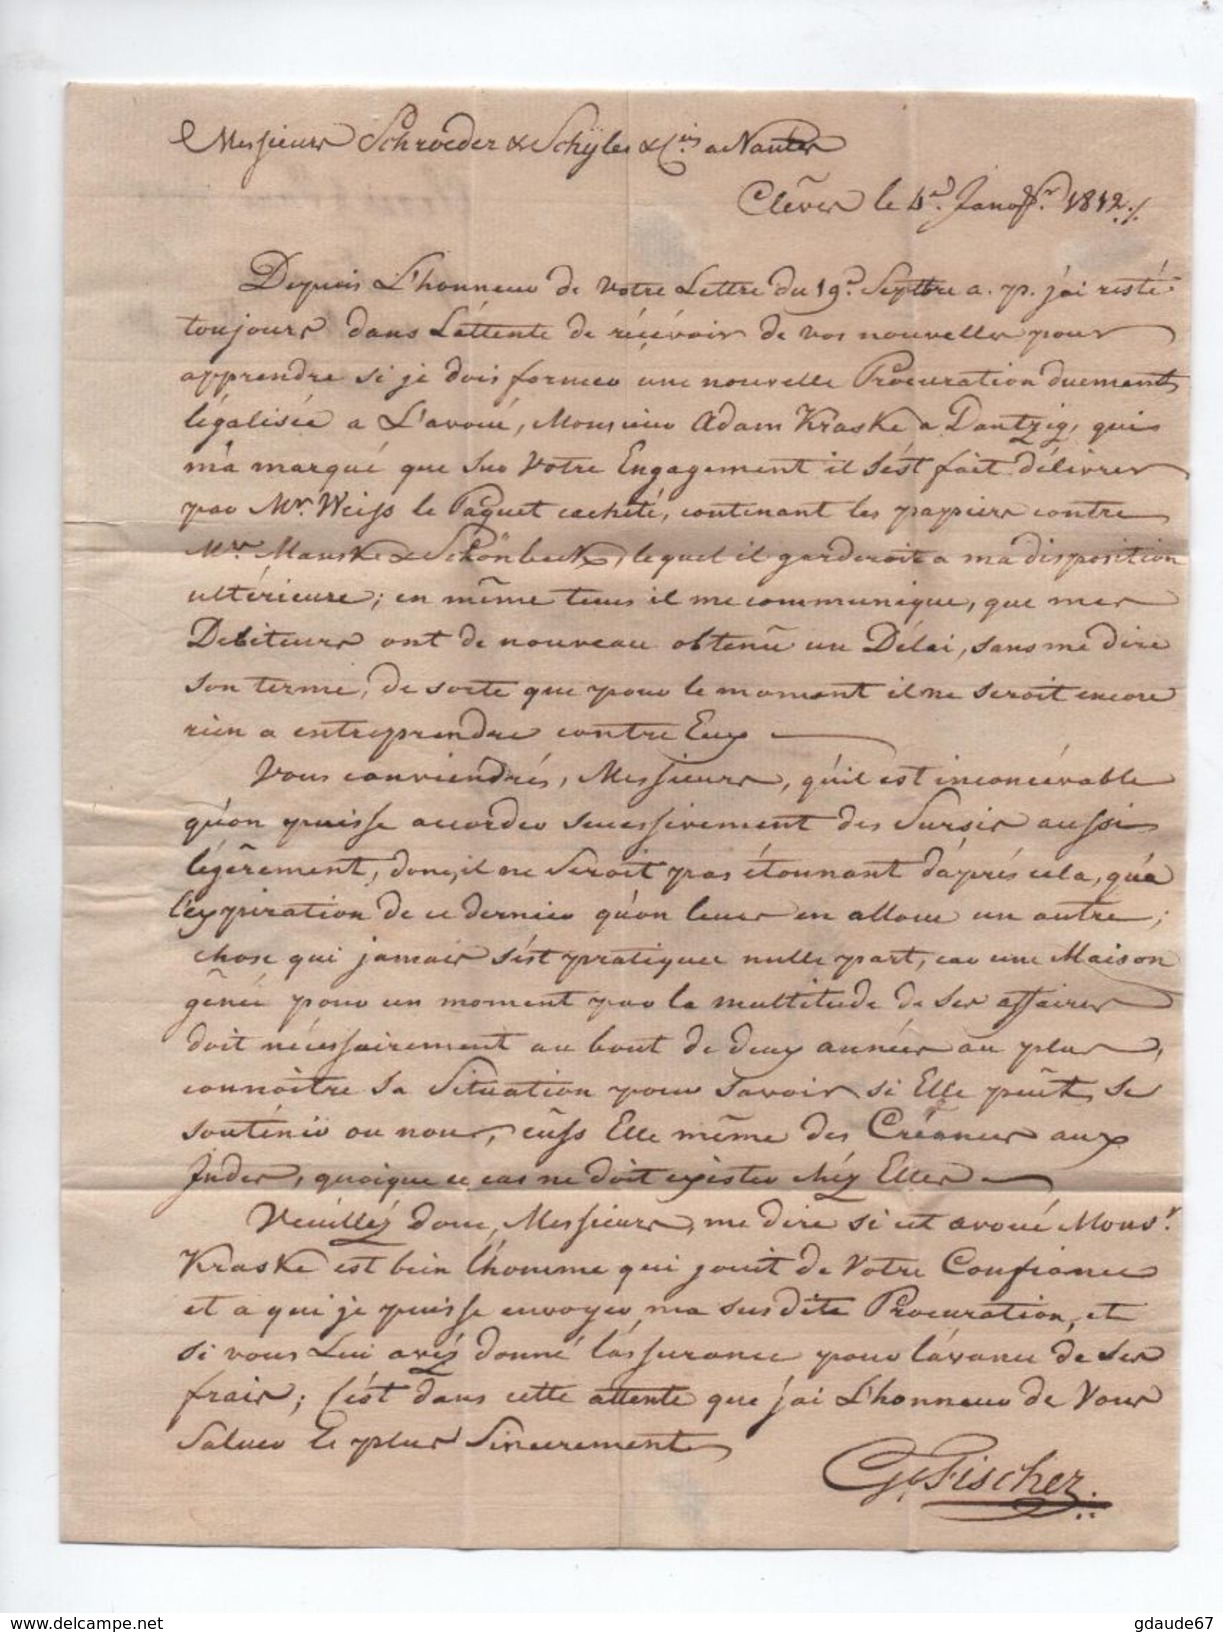 Messieurs Schroeder & Schÿler & Cie a Nantes
Clèves le 4e. Janvr. 1812./.
Depuis L'honneur de Votre Lettre du 19e. Septbre a. p. j'ai resté
toujours dans L'áttente de récévoir de vos nouvelles pour
apprendre si je dois former une nouvelle Procuration duement
légalisée a L'avoué, Monsieur Adam Kraske a Dantzig, qui
m'a marqué que sur Votre Engagement il s'est fait délivrer
par Mr. Weiss le Paquet cacheté, contenant les papiers contre
Mrs Manske & Schönbeck, lequel il garderoit a ma disposition
ultérieure; en même tems il me communique, que mes
Debiteurs ont de nouveau obtenû un Délai, sans me dire
son terme, de sorte que pour le moment il ne seroit encore
rien a entreprendre contre Eux
Vous conviendrés, Messieurs, qu'il est inconcévable
qu'on puisse accorder sucessivement des Sursis aussi
légêrement, donc, il ne Seroit pas étonnant d'aprés cela, qu'a
l'expiration de ce dernier qu'on leurs en alloue un autre;
chose qui jamais s'est pratiquee nulle part, car une Maison
gênée pour un moment par la multitude de Ses affaires
doit nécéssairement au bout de deux années au plus,
connoitre Sa Situation pour Savoir si Elle peût se
soutenir ou non, eûss Elle même des Créances aux
Indes, quoique ce cas ne doit exister chéz Elles
Veuilléz donc, Messieurs, me dire si cet avoué Monsr.
Kraske est bien l'homme qui jouit de Votre Confiance
et a qui je puisse envoyer ma susdite Procuration, et
si vous Lui avéz donné l'assurance pour l'avance de Ses
frais; C'est dans cette attente que j'ai L'honneur de Vous
Saluer le plus Sincerement
G. Fischer.
www.delcampe.net
gdaude67